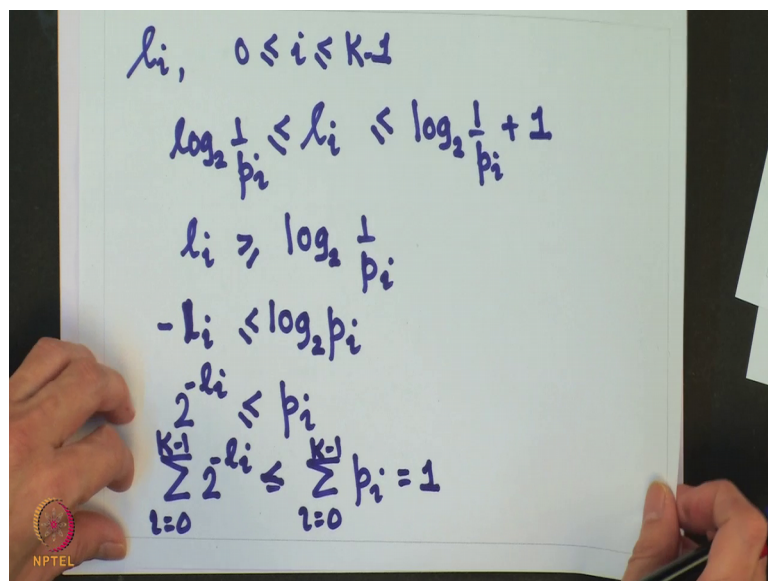 li, 0 ≤ i ≤ K-1
log₂ 1/pi ≤ li ≤ log₂ 1/pi + 1
li ≥ log₂ 1/pi
-li ≤ log₂ pi
2^-li ≤ pi
∑_{i=0}^{K-1} 2^-li ≤ ∑_{i=0}^{K-1} pi = 1
NPTEL